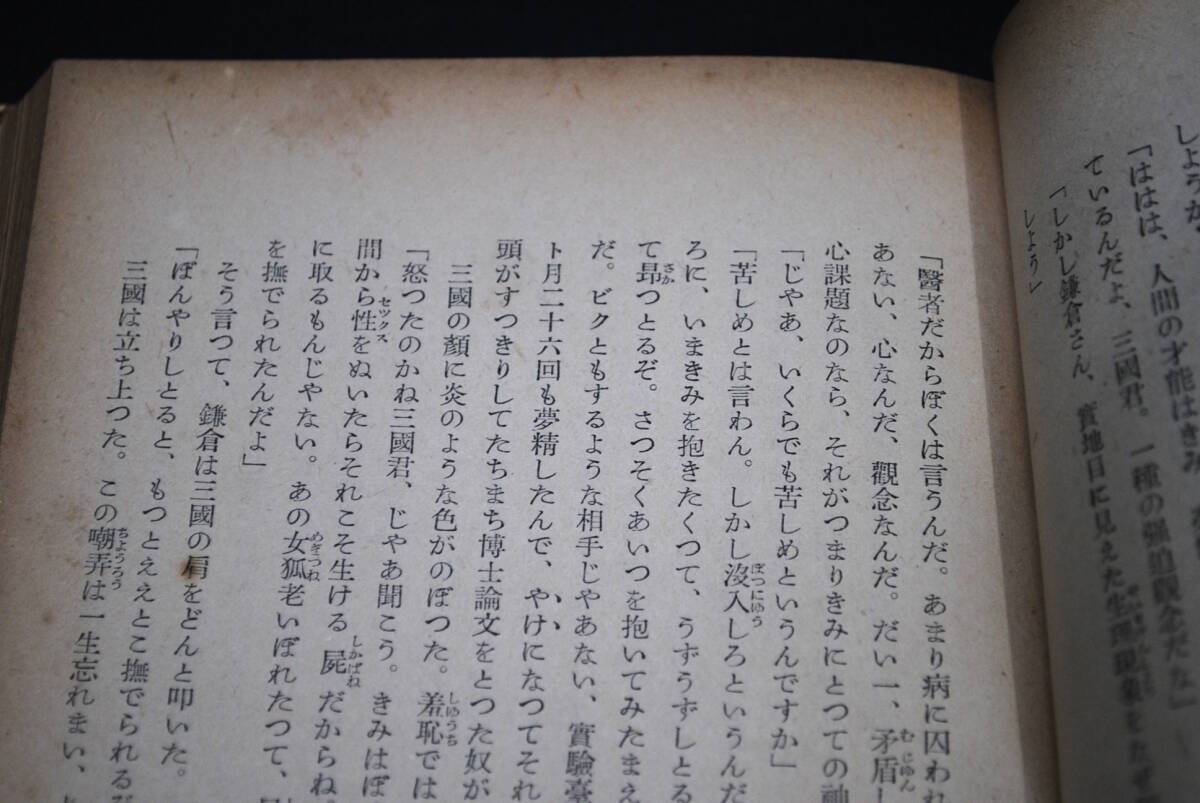 しようか、
「ははは、人間の才能はきみ、
ているんだよ、三國君。一種の强迫觀念だな」
「しかし鎌倉さん、實地目に見えた生理現象をたぜ
しよう」
「醫者だからぼくは言うんだ。あまり病に囚われ
あない、心なんだ、觀念なんだ。だい一、矛盾し
心課題なのなら、それがつまりきみにとつての神
「じやあ、いくらでも苦しめというんですか」
「苦しめとは言わん。しかし沒入しろというんだ
ろに、いまきみを抱きたくつて、うずうずしとる
て昻つとるぞ。さつそくあいつを抱いてみたまえ
だ。ビクともするような相手じやあない、實驗臺
ト月二十六回も夢精したんで、やけになつてそれ
頭がすつきりしてたちまち博士論文をとつた奴が
三國の顏に炎のような色がのぼつた。羞恥では
「怒つたのかね三國君、じやあ聞こう。きみはぼ
間から性をぬいたらそれこそ生ける屍だからね。
に取るもんじやない。あの女狐老いぼれたつて、
を撫でられたんだよ」
そう言つて、鎌倉は三國の肩をどんと叩いた。
「ぼんやりしとると、もつとええとこ撫でられるぞ
三國は立ち上つた。この嘲弄は一生忘れまい、